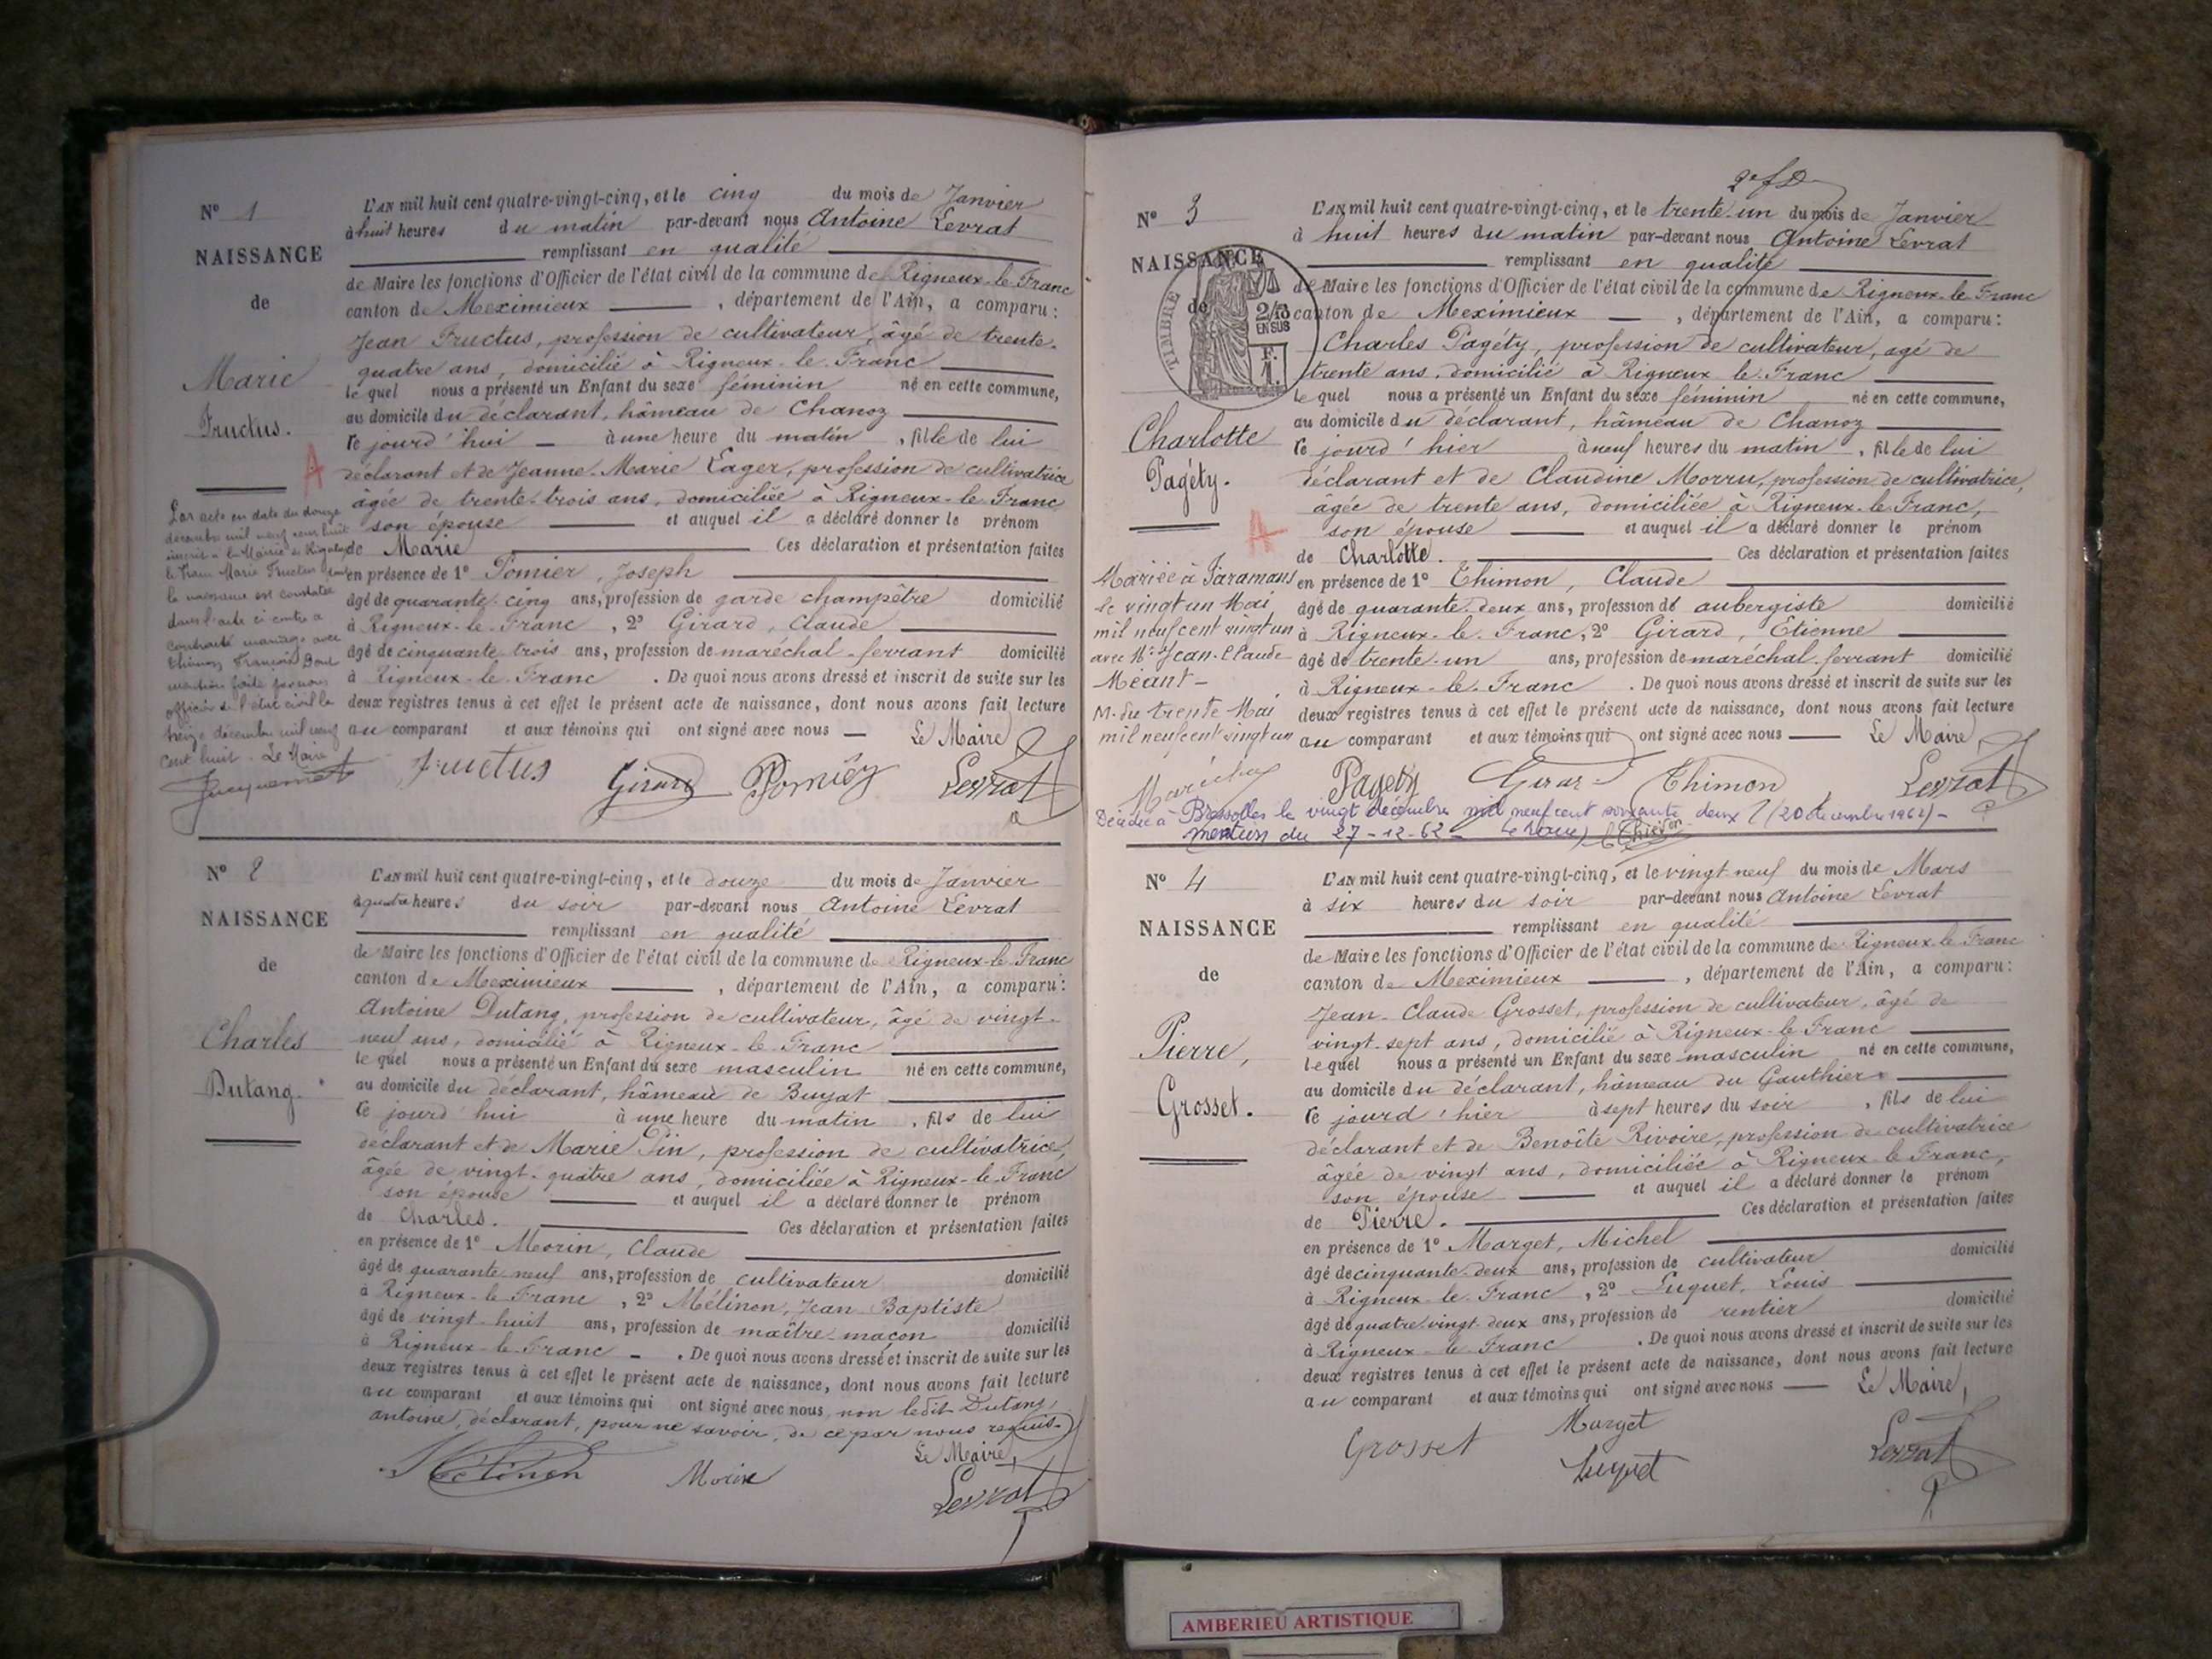 N° 1
NAISSANCE
de
Marie
Fructus.
A
Par acte en date du douze
décembre mil neuf cent huit
inscrit à la Mairie de Rigneux
le Franc Marie Fructus dont
la naissance est constatée
dans l'acte ci-contre a
contracté mariage avec
Thimon François Dont
mention faite par nous
officier de l'état civil le
treize décembre mil neuf
cent huit. Le Maire
L'AN mil huit cent quatre-vingt-cinq, et le cinq du mois de Janvier
à huit heures du matin par-devant nous Antoine Levrat
remplissant en qualité
de Maire les fonctions d'Officier de l'état civil de la commune de Rigneux-le-Franc
canton de Meximieux, département de l'Ain, a comparu:
Jean Fructus, profession de cultivateur, âgé de trente-
quatre ans, domicilié à Rigneux-le-Franc
lequel nous a présenté un Enfant du sexe féminin né en cette commune,
au domicile du déclarant, hâmeau de Chanoz
ce jourd'hui à une heure du matin, fille de lui
déclarant et de Jeanne-Marie Eager, profession de cultivatrice
âgée de trente-trois ans, domiciliée à Rigneux-le-Franc
son épouse et auquel il a déclaré donner le prénom
de Marie Ces déclaration et présentation faites
en présence de 1° Pomier, Joseph
âgé de quarante-cinq ans, profession de garde champêtre domicilié
à Rigneux-le-Franc, 2° Girard, Claude
âgé de cinquante-trois ans, profession de maréchal-ferrant domicilié
à Rigneux-le-Franc. De quoi nous avons dressé et inscrit de suite sur les
deux registres tenus à cet effet le présent acte de naissance, dont nous avons fait lecture
au comparant et aux témoins qui ont signé avec nous — Le Maire
Fructus Girard Pomier Levrat
N° 2
NAISSANCE
de
Charles
Dutang.
L'AN mil huit cent quatre-vingt-cinq, et le douze du mois de Janvier
à quatre heures du soir par-devant nous Antoine Levrat
remplissant en qualité
de Maire les fonctions d'Officier de l'état civil de la commune de Rigneux-le-Franc
canton de Meximieux, département de l'Ain, a comparu:
Antoine Dutang, profession de cultivateur, âgé de vingt-
neuf ans, domicilié à Rigneux-le-Franc
lequel nous a présenté un Enfant du sexe masculin né en cette commune,
au domicile du déclarant, hâmeau de Buyat
ce jourd'hui à une heure du matin, fils de lui
déclarant et de Marie Pin, profession de cultivatrice,
âgée de vingt-quatre ans, domiciliée à Rigneux-le-Franc
son épouse et auquel il a déclaré donner le prénom
de Charles. Ces déclaration et présentation faites
en présence de 1° Morin, Claude
âgé de quarante-neuf ans, profession de cultivateur domicilié
à Rigneux-le-Franc, 2° Mélinon, Jean Baptiste
âgé de vingt-huit ans, profession de maître-maçon domicilié
à Rigneux-le-Franc. De quoi nous avons dressé et inscrit de suite sur les
deux registres tenus à cet effet le présent acte de naissance, dont nous avons fait lecture
au comparant et aux témoins qui ont signé avec nous, non ledit Dutang,
antoine, déclarant, pour ne savoir, de ce par nous requis.
Le Maire,
Mélinon Morin Levrat
N° 3
NAISSANCE
de
TIMBRE
2/10
EN SUS
F.
1.
Charlotte
Pagéty.
A
Mariée à Faramans
le vingt un Mai
mil neuf cent vingt un
avec M. Jean-Claude
Méant -
M. du trente Mai
mil neuf cent vingt un
L'AN mil huit cent quatre-vingt-cinq, et le trente-un du mois de Janvier
à huit heures du matin par-devant nous Antoine Levrat
remplissant en qualité
de Maire les fonctions d'Officier de l'état civil de la commune de Rigneux-le-Franc
canton de Meximieux, département de l'Ain, a comparu:
Charles Pagéty, profession de cultivateur, agé de
trente ans, domicilié à Rigneux-le-Franc
lequel nous a présenté un Enfant du sexe féminin né en cette commune,
au domicile du déclarant, hâmeau de Chanoz
ce jourd'hier à neuf heures du matin, fille de lui
déclarant et de Claudine Morru, profession de cultivatrice,
âgée de trente ans, domiciliée à Rigneux-le-Franc,
son épouse et auquel il a déclaré donner le prénom
de Charlotte. Ces déclaration et présentation faites
en présence de 1° Thimon, Claude
âgé de quarante-deux ans, profession de aubergiste domicilié
à Rigneux-le-Franc, 2° Girard, Etienne
âgé de trente-un ans, profession de maréchal-ferrant domicilié
à Rigneux-le-Franc. De quoi nous avons dressé et inscrit de suite sur les
deux registres tenus à cet effet le présent acte de naissance, dont nous avons fait lecture
au comparant et aux témoins qui ont signé avec nous — Le Maire,
Pagéty Girard Thimon Levrat
Décédée à Bressolles le vingt décembre mil neuf cent soixante deux (20 décembre 1962) -
mention du 27-12-62 - Le Maire,
N° 4
NAISSANCE
de
Pierre,
Grosset.
L'AN mil huit cent quatre-vingt-cinq, et le vingt-neuf du mois de Mars
à six heures du soir par-devant nous Antoine Levrat
remplissant en qualité
de Maire les fonctions d'Officier de l'état civil de la commune de Rigneux-le-Franc
canton de Meximieux, département de l'Ain, a comparu:
Jean-Claude Grosset, profession de cultivateur, âgé de
vingt-sept ans, domicilié à Rigneux-le-Franc
lequel nous a présenté un Enfant du sexe masculin né en cette commune,
au domicile du déclarant, hâmeau du Gauthier
ce jourd'hier à sept heures du soir, fils de lui
déclarant et de Benoîte Rivoire, profession de cultivatrice
âgée de vingt ans, domiciliée à Rigneux-le-Franc,
son épouse et auquel il a déclaré donner le prénom
de Pierre. Ces déclaration et présentation faites
en présence de 1° Marget, Michel
âgé de cinquante-deux ans, profession de cultivateur domicilié
à Rigneux-le-Franc, 2° Luquet, Louis
âgé de quatre-vingt-deux ans, profession de rentier domicilié
à Rigneux-le-Franc. De quoi nous avons dressé et inscrit de suite sur les
deux registres tenus à cet effet le présent acte de naissance, dont nous avons fait lecture
au comparant et aux témoins qui ont signé avec nous — Le Maire,
Grosset Marget Levrat
Luquet
AMBERIEU ARTISTIQUE